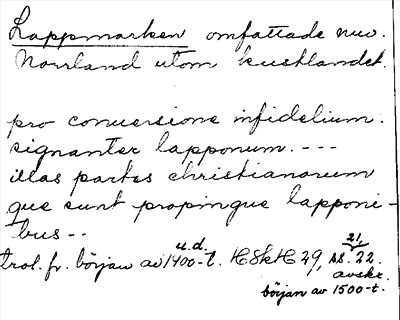 Lappmarken omfattade nuv.
Norrland utom kustlandet.
pro conuersione infidelium.
signanter lapponum. ---
illas partes christianorum
que sunt propinque lapponi-
bus --
u.d. 21,
trol. fr. början av 1400-t. HSkH 29, ss. 22.
avskr.
början av 1500-t.